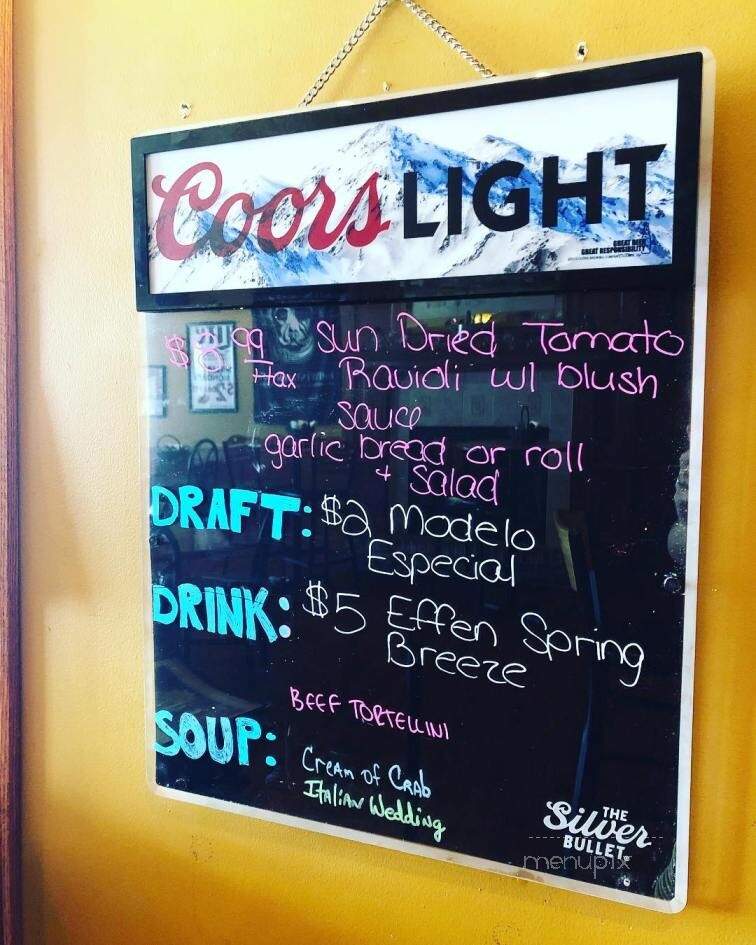 Coors LIGHT
GREAT BEER
GREAT RESPONSIBILITY
$8.99 Sun Dried Tomato
+tax Ravioli w/ blush
sauce
garlic bread or roll
+ Salad
DRAFT: $2 Modelo
Especial
DRINK: $5 Effen Spring
Breeze
BEEF TORTELLINI
SOUP: Cream of Crab
Italian Wedding
THE
Silver
BULLET
menupix